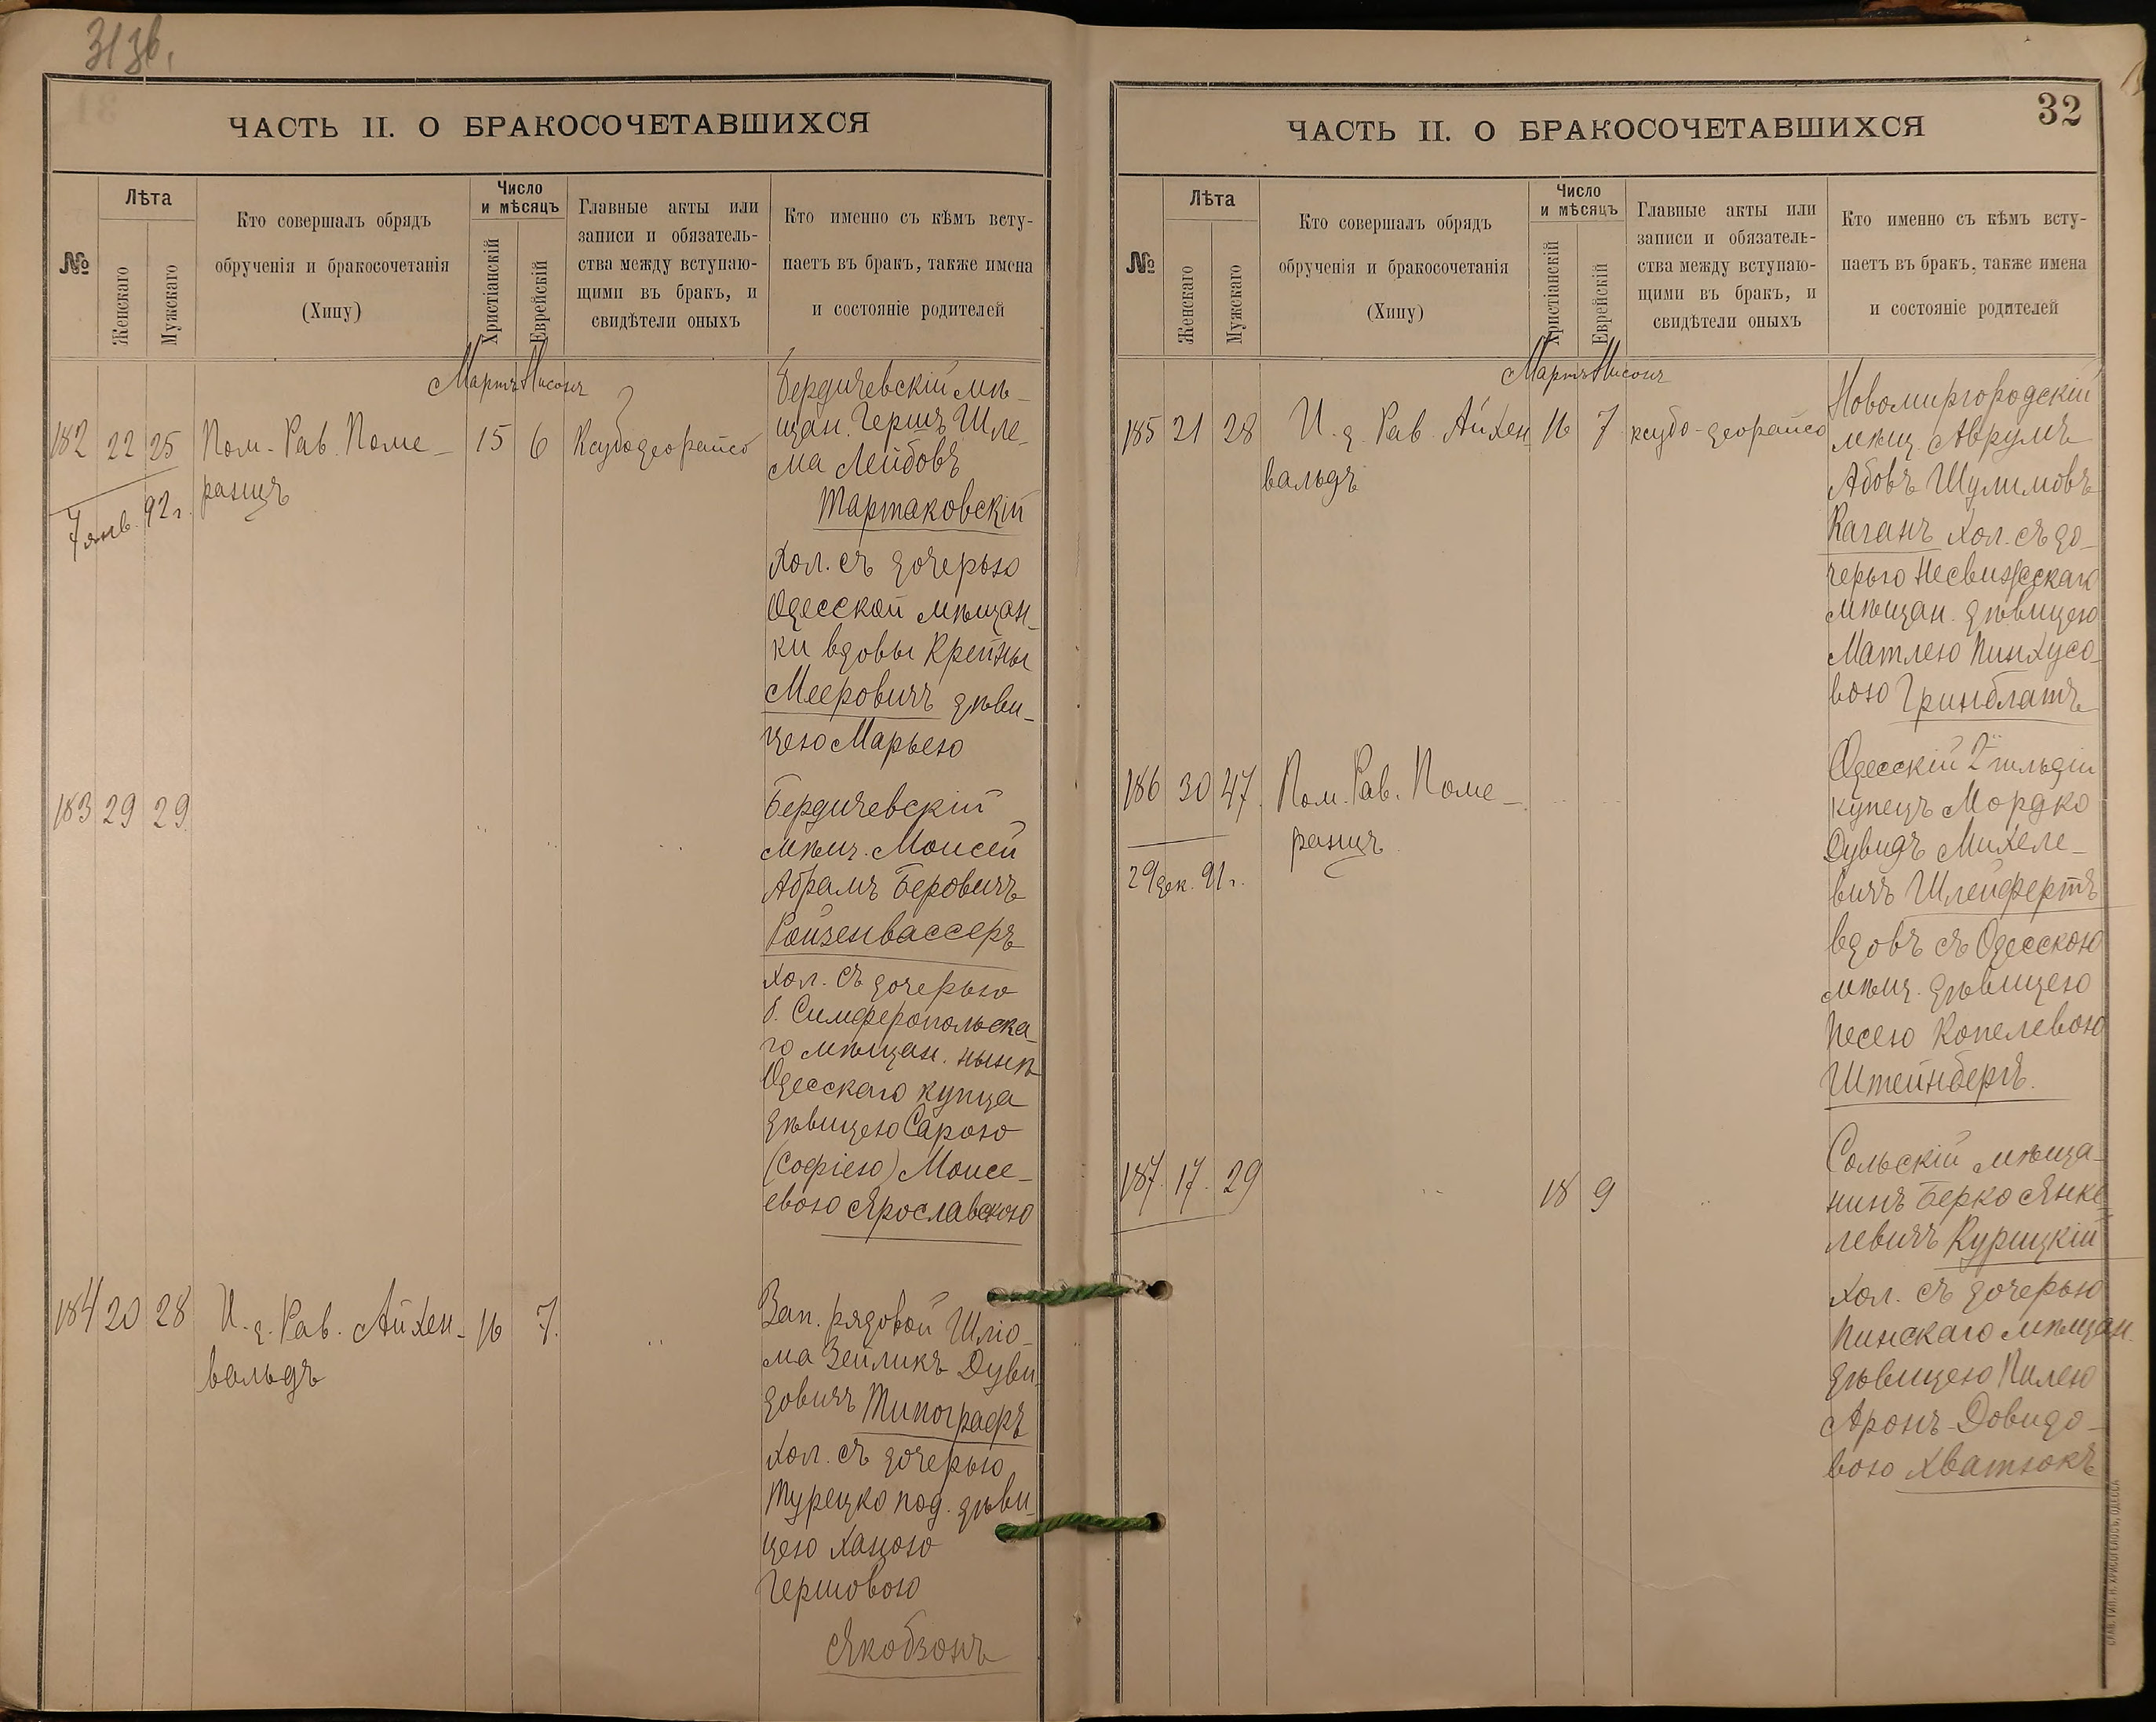 31 зв.
ЧАСТЬ II. О БРАКОСОЧЕТАВШИХСЯ
№
Лѣта
Женскаго
Мужскаго
Кто совершалъ обрядъ
обрученія и бракосочетанія
(Хипу)
Число
и мѣсяцъ
Христіанскій
Еврейскій
Главные акты или
записи и обязатель-
ства между вступаю-
щими въ бракъ, и
свидѣтели оныхъ
Кто именно съ кѣмъ всту-
паетъ въ бракъ, также имена
и состояніе родителей
Мартъ Нисонъ
182 22 25 Пом. Рав. Поме-
ранцъ
15 6 Ксубодеорайсо
7 янв. 92 г.
Бердичевскій мѣ-
щан. Гершъ Шле-
ма Лейбовъ
Тартаковскій
хол. съ дочерью
Одесской мѣщан-
ки вдовы Крейны
Мееровичъ дѣви-
цею Марьею
183 29 29
Бердичевскій
мѣщ. Моисей
Абрамъ Беровичъ
Ройзенвассеръ
хол. съ дочерью
б. Симферопольска-
го мѣщан. нынѣ
Одесскаго купца
дѣвицею Сарою
(Софіею) Моисе-
евою Ярославскою
184 20 28 И. д. Рав. Айхен-
вальдъ
16 7.
Зап. рядовой Шліо-
ма Зейликъ Дуви-
довичъ Типографъ
хол. съ дочерью
Турецко под. дѣви-
цею Ханою
Гершовою
Якобзонъ
32
ЧАСТЬ II. О БРАКОСОЧЕТАВШИХСЯ
№
Лѣта
Женскаго
Мужскаго
Кто совершалъ обрядъ
обрученія и бракосочетанія
(Хипу)
Число
и мѣсяцъ
Христіанскій
Еврейскій
Главные акты или
записи и обязатель-
ства между вступаю-
щими въ бракъ, и
свидѣтели оныхъ
Кто именно съ кѣмъ всту-
паетъ въ бракъ, также имена
и состояніе родителей
Мартъ Нисонъ
185 21 28 И. д. Рав. Айхен
вальдъ
16 7 ксубо-деорайсо
Новомиргородскій
мѣщ. Аврумъ
Абовъ Шулимовъ
Каганъ хол. съ до-
черью Несвижскаго
мѣщан. дѣвицею
Матлею Пинхусо-
вою Гринблатъ
186 30 47. Пом. Рав. Поме-
ранцъ
29 дек. 91 г.
Одесскій 2й гильдіи
купецъ Мордко
Дувидъ Михеле-
вичъ Шлейфертъ
вдовъ съ Одесскою
мѣщ. дѣвицею
Песею Копелевою
Штейнбергъ.
187. 17. 29
18 9
Сольскій мѣща-
нинъ Берко Янке-
левичъ Курицкій
хол. съ дочерью
Пинскаго мѣщан.
дѣвицею Пилею
Аронъ-Довидо-
вою Хватюкъ